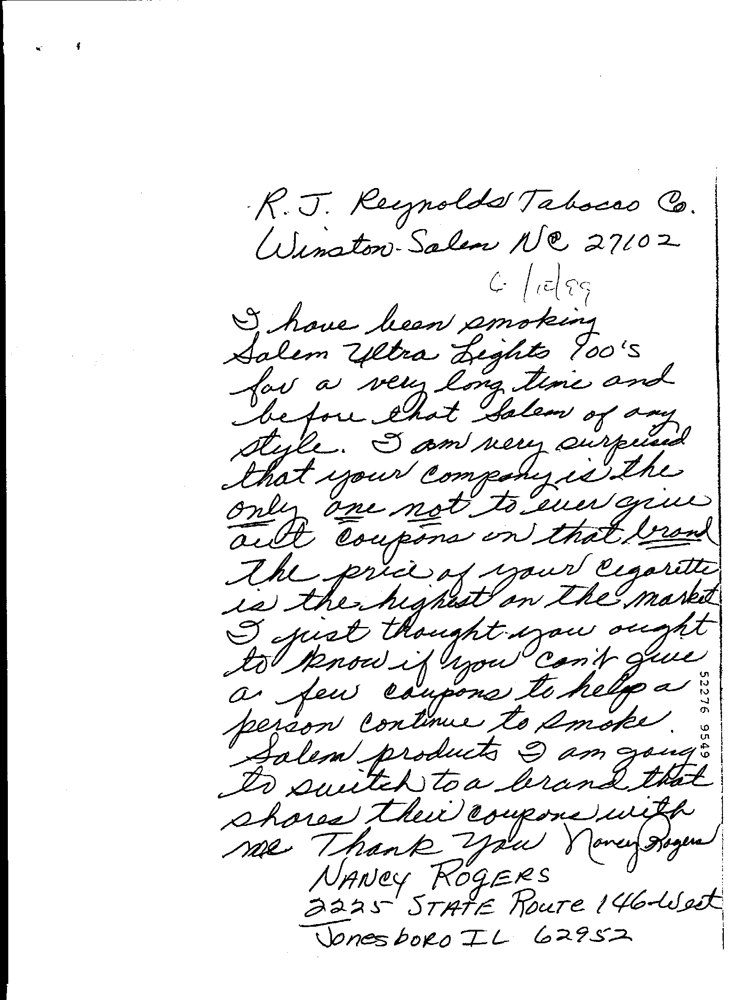 R. J. Reynolds Tabocco Co.
Winston-Salem NC 27102
6/12/99
I have been smoking
Salem Ultra Lights 100's
for a very long time and
before that Salem of any
style. I am very surpused
that your company is the
only one not to ever give
out coupons on that brand
The price of your cegarette
is the highest on the market
I just thought you ought
to know if you can't give
a few coupons to help a
person continue to smoke
Salem products I am going
to switch to a brand that
shares their coupons with
me Thank You Nancy Rogers
NANCY ROGERS
2225 STATE ROUTE 146-West
Jonesboro IL 62952
52276 9549